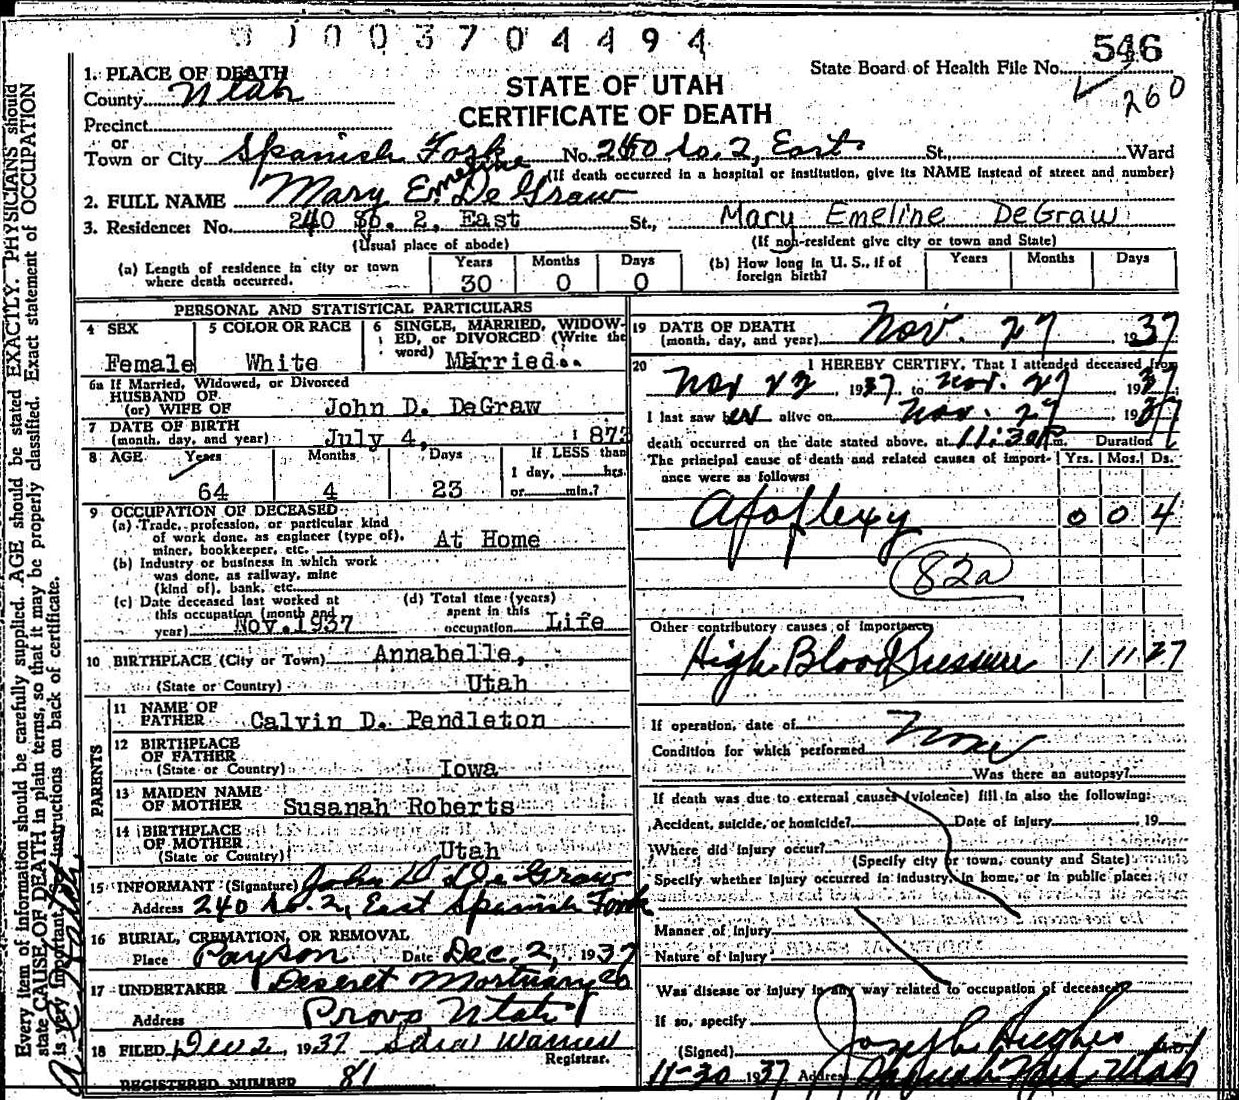 9 1 0 0 3 7 0 4 4 9 4
546
State Board of Health File No.
260
1. PLACE OF DEATH
County Utah
STATE OF UTAH
CERTIFICATE OF DEATH
Precinct
or
Town or City Spanish Fork No. 240 So. 2, East St., Ward
(If death occurred in a hospital or institution, give its NAME instead of street and number)
2. FULL NAME Mary Emeline De Graw
3. Residence: No. 240 So. 2, East St., Mary Emeline DeGraw
(Usual place of abode) (If non-resident give city or town and State)
(a) Length of residence in city or town where death occurred. Years 30 Months 0 Days 0
(b) How long in U. S., if of foreign birth? Years Months Days
PERSONAL AND STATISTICAL PARTICULARS
4 SEX Female
5 COLOR OR RACE White
6 SINGLE, MARRIED, WIDOWED, or DIVORCED (Write the word) Married
6a If Married, Widowed, or Divorced
HUSBAND OF
(or) WIFE OF John D. DeGraw
7 DATE OF BIRTH
(month, day, and year) July 4, 1873
8 AGE Years Months Days If LESS than
1 day, hrs.
64 4 23 or min.?
9 OCCUPATION OF DECEASED
(a) Trade, profession, or particular kind
of work done, as engineer (type of),
miner, bookkeeper, etc. At Home
(b) Industry or business in which work
was done, as railway, mine
(kind of), bank, etc.
(c) Date deceased last worked at
this occupation (month and
year) Nov. 1937
(d) Total time (years)
spent in this
occupation Life
10 BIRTHPLACE (City or Town) Annabelle,
(State or Country) Utah
PARENTS
11 NAME OF
FATHER Calvin D. Pendleton
12 BIRTHPLACE
OF FATHER
(State or Country) Iowa
13 MAIDEN NAME
OF MOTHER Susanah Roberts
14 BIRTHPLACE
OF MOTHER
(State or Country) Utah
15 INFORMANT (Signature) John D De Graw
Address 240 So. 2, East Spanish Fork
16 BURIAL, CREMATION, OR REMOVAL
Place Payson Date Dec. 2, 1937
17 UNDERTAKER Deseret Mortuary Co
Address Provo Utah
18 FILED Dec 2, 1937 Warner
Registrar.
REGISTERED NUMBER 81
19 DATE OF DEATH
(month, day, and year) Nov. 27 1937
20 I HEREBY CERTIFY, That I attended deceased from
Nov 22, 1937, to Nov. 27 1937
I last saw her alive on Nov. 27, 1937
death occurred on the date stated above, at 11:30 P m. Duration
The principal cause of death and related causes of importance were as follows: Yrs. Mos. Ds.
Apoplexy 0 0 4
82a
Other contributory causes of importance
High Blood Pressure 1 11 27
If operation, date of None
Condition for which performed
Was there an autopsy?
If death was due to external causes (violence) fill in also the following:
Accident, suicide, or homicide? Date of injury 19
Where did injury occur?
(Specify city or town, county and State)
Specify whether injury occurred in industry, in home, or in public place:
Manner of Injury
Nature of Injury
Was disease or injury in any way related to occupation of deceased
If so, specify
(Signed) Joseph Hughes MD
11-30 1937 Address Spanish Fork Utah
Every item of information should be carefully supplied. AGE should be stated EXACTLY. PHYSICIANS should
state CAUSE OF DEATH in plain terms, so that it may be properly classified. Exact statement of OCCUPATION
is very important. Instructions on back of certificate.